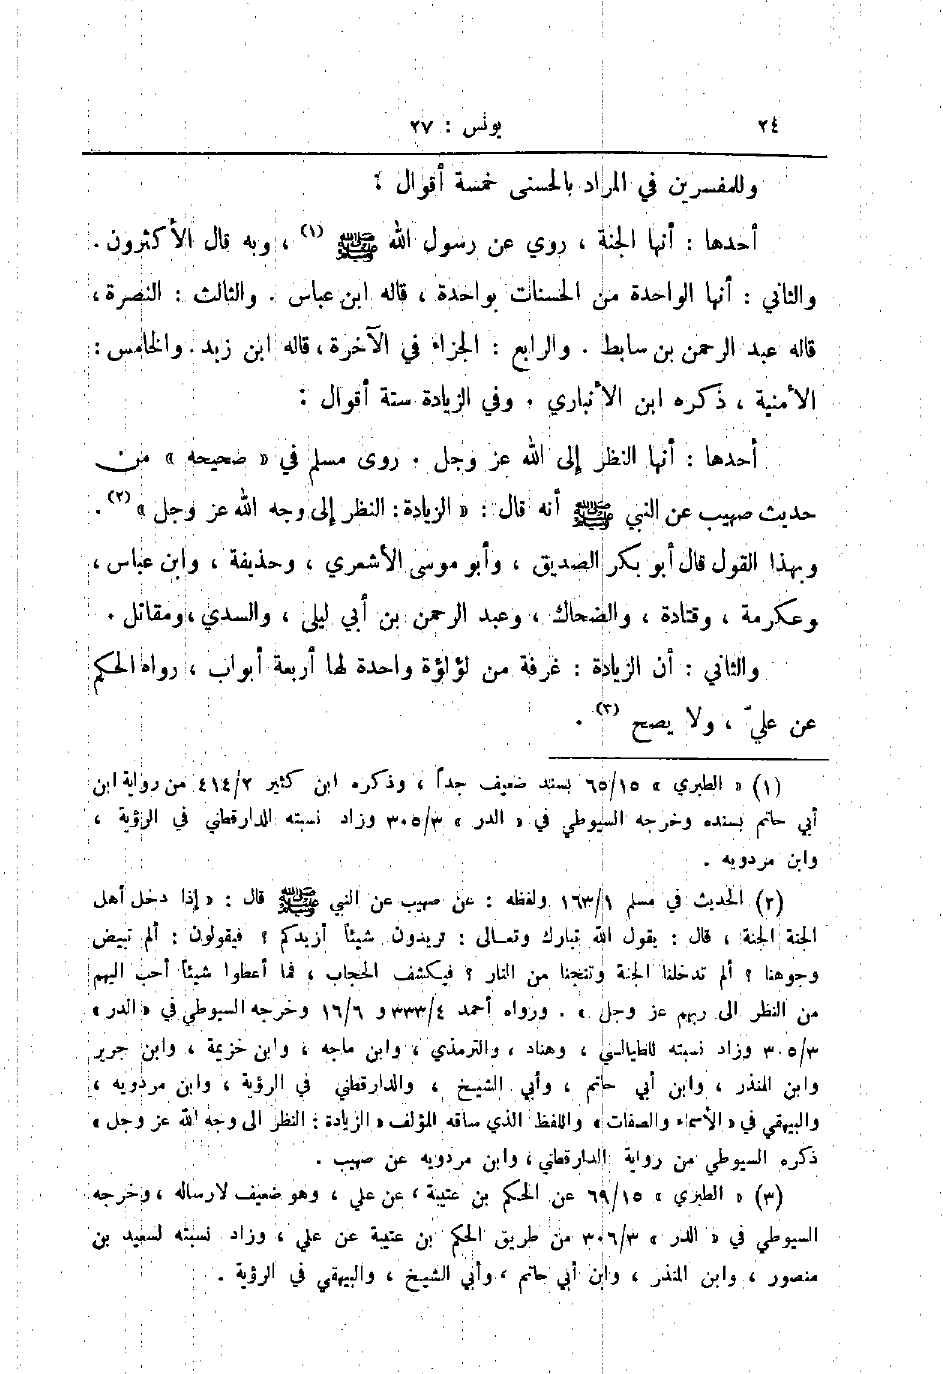 ٢٤ يونس : ٢٧
وللمفسرين في المراد بالحسنى خمسة أقوال :
أحدها : أنها الجنة ، روي عن رسول الله ﷺ (١) ، وبه قال الأكثرون .
والثاني : أنها الواحدة من الحسنات بواحدة ، قاله ابن عباس . والثالث : النصرة ،
قاله عبد الرحمن بن سابط . والرابع : الجزاء في الآخرة ، قاله ابن زيد . والخامس :
الأمنية ، ذكره ابن الأنباري . وفي الزيادة ستة أقوال :
أحدها : أنها النظر إلى الله عز وجل . روى مسلم في « صحيحه » من
حديث صهيب عن النبي ﷺ أنه قال : « الزيادة : النظر إلى وجه الله عز وجل » (٢) .
وبهذا القول قال أبو بكر الصديق ، وأبو موسى الأشعري ، وحذيفة ، وابن عباس ،
وعكرمة ، وقتادة ، والضحاك ، وعبد الرحمن بن أبي ليلى ، والسدي ، ومقاتل .
والثاني : أن الزيادة : غرفة من لؤلؤة واحدة لها أربعة أبواب ، رواه الحكم
عن عليّ ، ولا يصح (٣) .
(١) « الطبري » ٦٥/١٥ بسند ضعيف جداً ، وذكره ابن كثير ٤١٤/٢ من رواية ابن
أبي حاتم بسنده وخرجه السيوطي في « الدر » ٣٠٥/٣ وزاد نسبته للدارقطني في الرؤية ،
وابن مردويه .
(٢) الحديث في مسلم ١٦٣/١ ولفظه : عن صهيب عن النبي ﷺ قال : « إذا دخل أهل
الجنة الجنة ، قال : يقول الله تبارك وتعالى : تريدون شيئاً أزيدكم ؟ فيقولون : ألم تبيض
وجوهنا ؟ ألم تدخلنا الجنة وتنجنا من النار ؟ فيكشف الحجاب ، فما أعطوا شيئاً أحب اليهم
من النظر الى ربهم عز وجل » . ورواه أحمد ٣٣٣/٤ و ١٦/٦ وخرجه السيوطي في « الدر »
٣٠٥/٣ وزاد نسبته للطيالسي ، وهناد ، والترمذي ، وابن ماجه ، وابن خزيمة ، وابن جرير
وابن المنذر ، وابن أبي حاتم ، وأبي الشيخ ، والدارقطني في الرؤية ، وابن مردويه ،
والبيهقي في « الأسماء والصفات » واللفظ الذي ساقه المؤلف « الزيادة : النظر الى وجه الله عز وجل »
ذكره السيوطي من رواية الدارقطني ، وابن مردويه عن صهيب .
(٣) « الطبري » ٦٩/١٥ عن الحكم بن عتيبة ، عن علي ، وهو ضعيف لارساله ، وخرجه
السيوطي في « الدر » ٣٠٦/٣ من طريق الحكم بن عتيبة عن علي ، وزاد نسبته لسعيد بن
منصور ، وابن المنذر ، وابن أبي حاتم ، وأبي الشيخ ، والبيهقي في الرؤية .